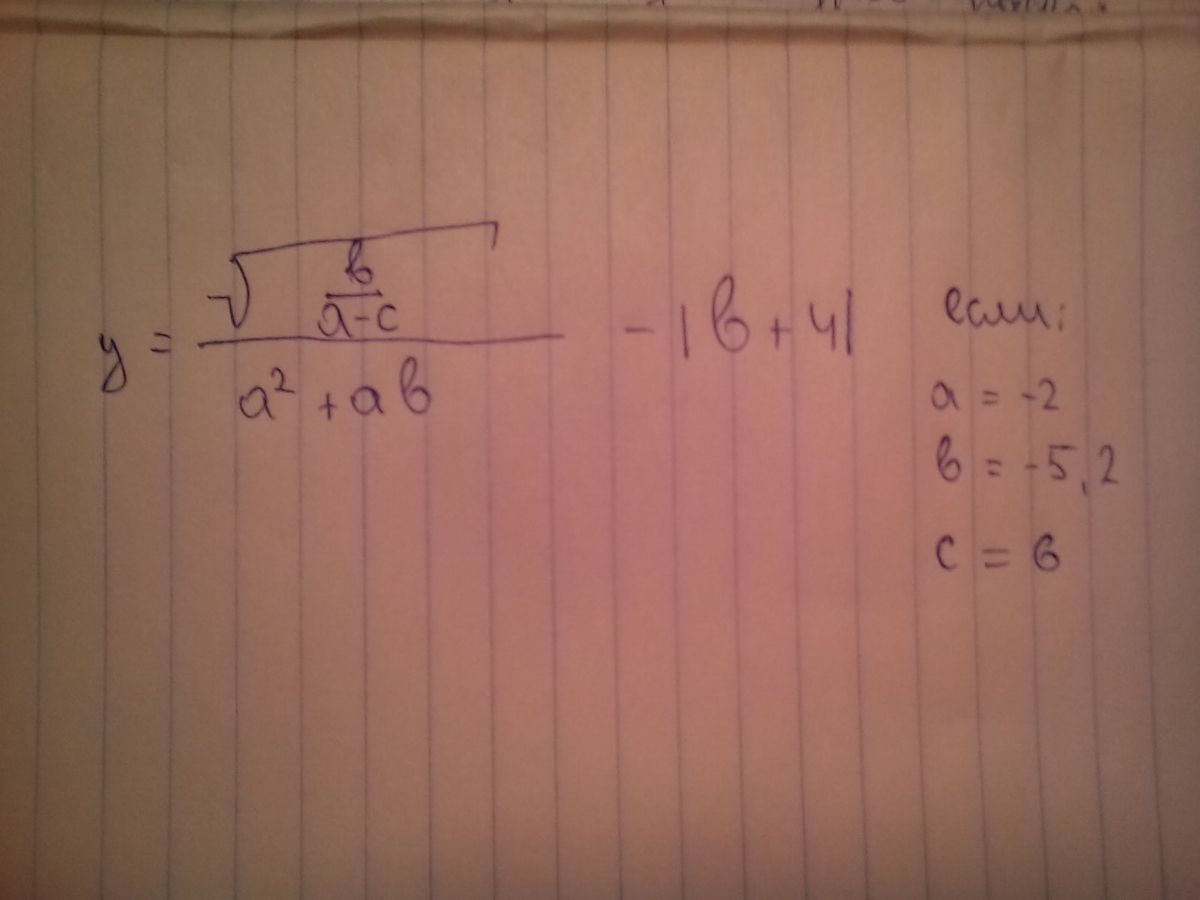 y = √(в/(a-c)) / (a² + aв) - |в + 4|
если:
a = -2
в = -5,2
c = 6